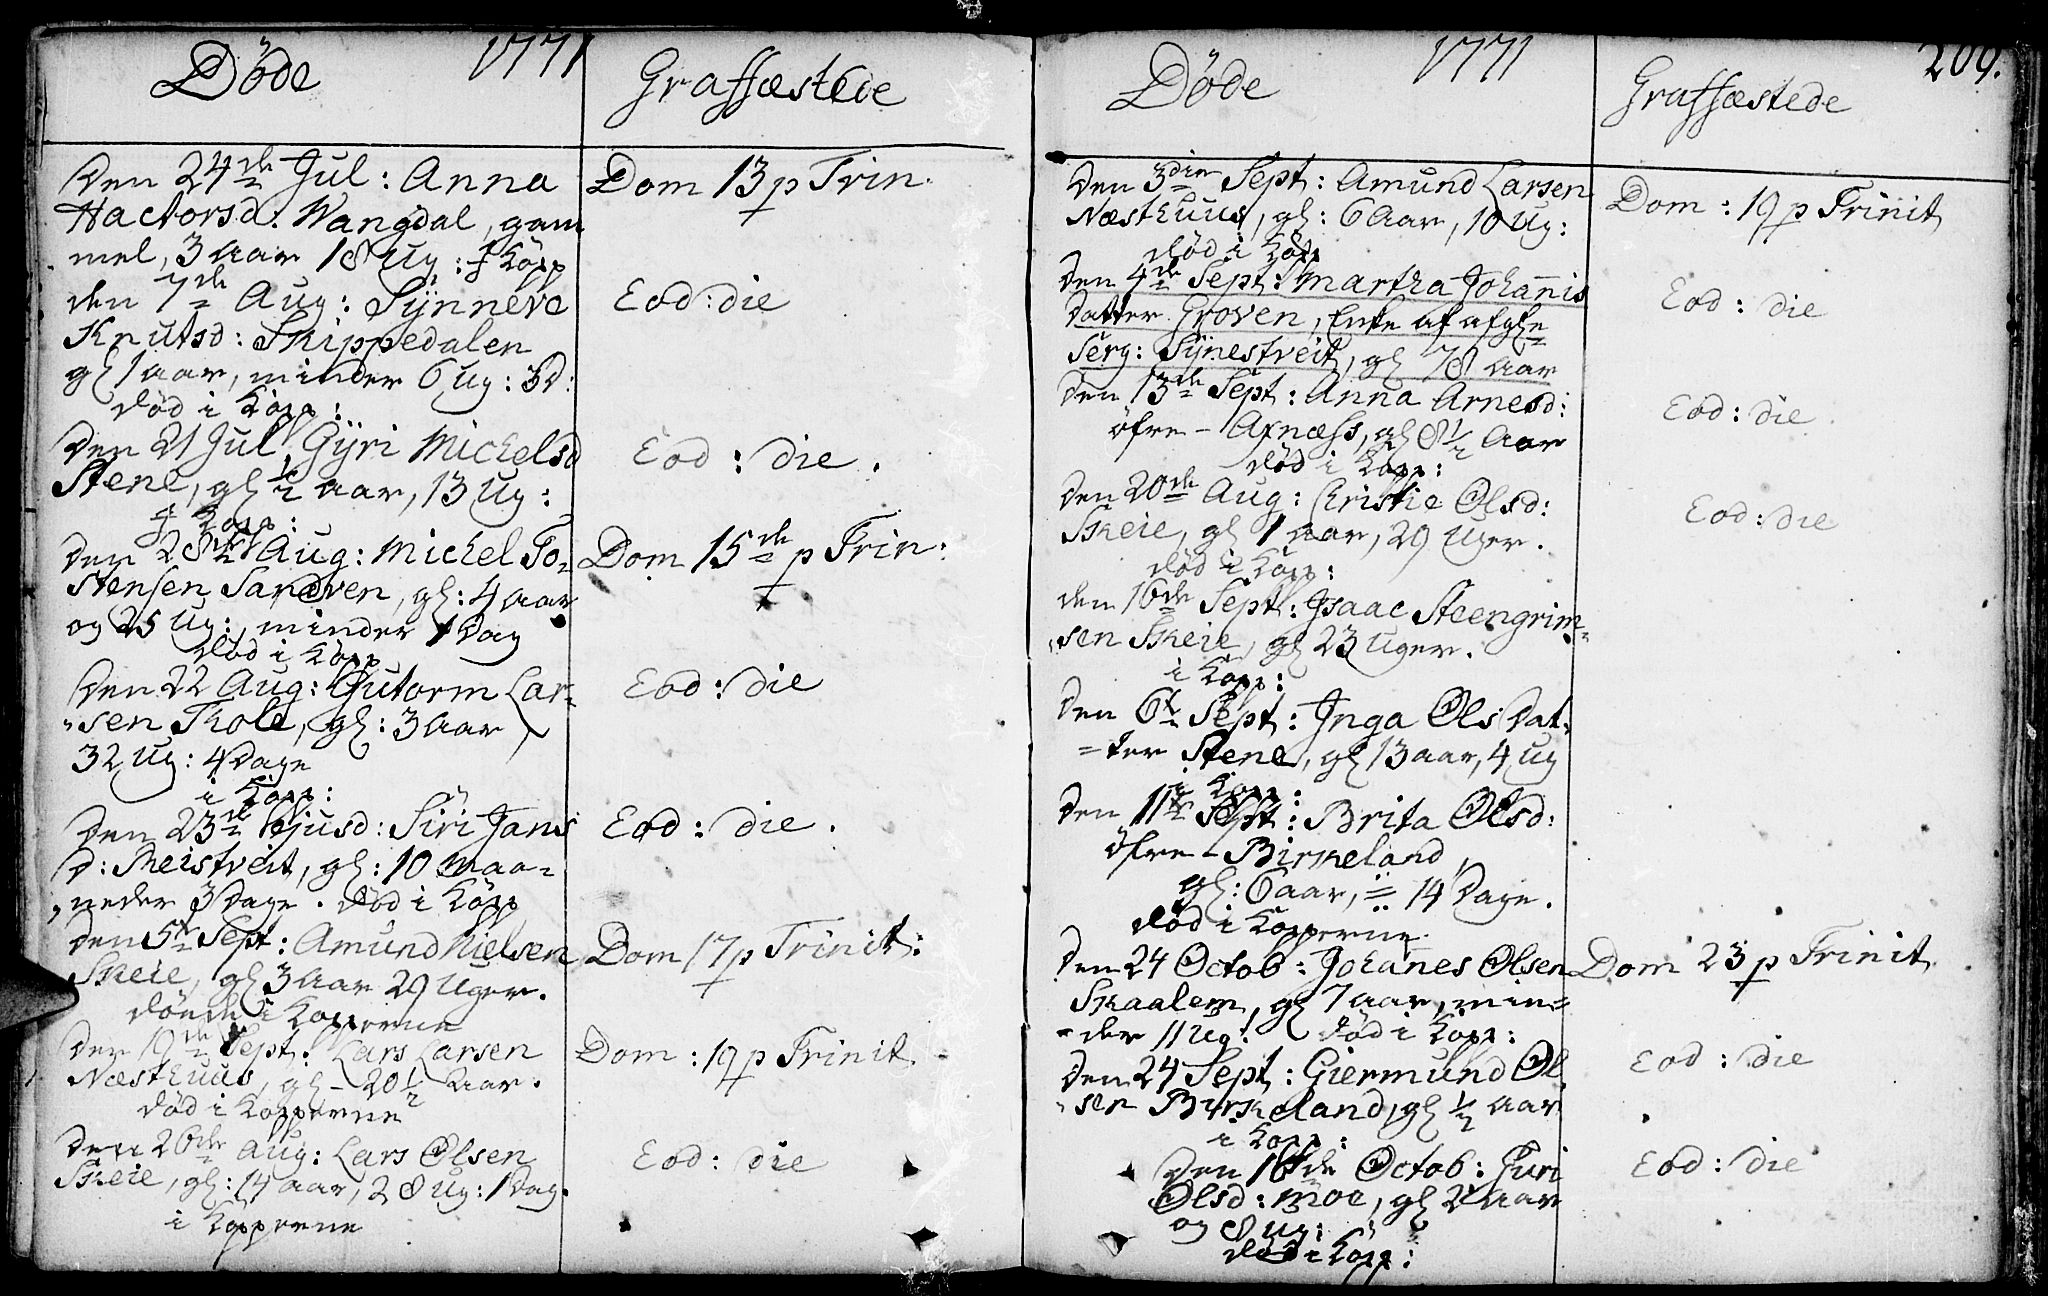 Døde 1771 Graffæstede
Den 24de Jul: Anna
Hactorsd: Wangdal, gam
mel, 3 aar 18 Ug: i Kopp
Dom 13 p Trin.
den 7de Aug: Synneve
Knutsd: Skippedalen
gl 1 aar, minder 6 ug: 3 D:
død i Kopp:
Eod: die
Den 21 Jul, Gyri Michelsd
Stene, gl ½ aar, 13 Ug:
i Kopp:
Eod: die.
Den 28de Aug: Michel To-
stensen Sandven, gl: 4 aar
og 25 Ug:, minder 1 Dag
død i Kopp
Dom 15de p Trin:
Den 22 Aug: Gutorm Lar-
-sen Tkole, gl: 3 Aar,
32 Ug: 4 Dage
i Kopp:
Eod: die
Den 23de ejusd: Siri Jans
D: Skeistveit, gl: 10 Maa-
neder 3 Dage. død i Kopp
Eod: die.
Den 5te Sept: Amund Nielsen
Skeie, gl 3 Aar 29 Uger.
døende i Kopperne
Dom 17 p Trinit:
Den 19de Sept: Lars Larsen
Næsthuus, gl - 20½ Aar.
død i Kopperne
Dom: 19 p Trinit.
Den 26de Aug: Lars Olsen
Skeie, gl: 14 aar, 28 Ug: 1 Dag.
i Kopperne
Eod: die
Døde 1771 Graffæstede 209.
Den 3die Sept: Amund Larsen
Næsthuus, gl: 6 Aar, 10 Ug:
død i Kopp
Dom: 19 p Trinit
Den 4de Sept: Martha Johannis
Datter Groven, Enke af afgle
Serg: Synestveit, gl 78 Aar
Eod: die
Den 13de Sept: Anna Arnesd:
øfre - Axnæss, gl 8½ Aar
død i Kopp:
Eod: die
Den 20de Aug: Christie Olsd:
Skeie, gl 1 aar, 29 Uger.
død i Kopp:
Eod: die
den 16de Sept: Isaac Steengrim-
-sen Skeie, gl 23 Uger.
i Kopp:
Den 6te Sept: Inga Ols Dat-
-ter Stene, gl 13 aar, 4 ug
i Kopp:
Den 11te Sept: Brita Olsd:
Öfre - Birkeland,
gl: 6 aar, = 14 Dage.
død i Kopperne.
Den 24 Octob: Johanes Olsen
Skaalem, gl 7 aar, min-
-der 11 Ug: død i Kopp:
Dom 23 p Trinit.
Den 24 Sept: Giermund Ol
-sen Birkeland, gl ½ aar
i Kopp:
Eod: die
Den 16de Octob: Guri
Olsd: Moe, gl 2 Aar
og 8 ug:
død i Kopp:
Eod: die